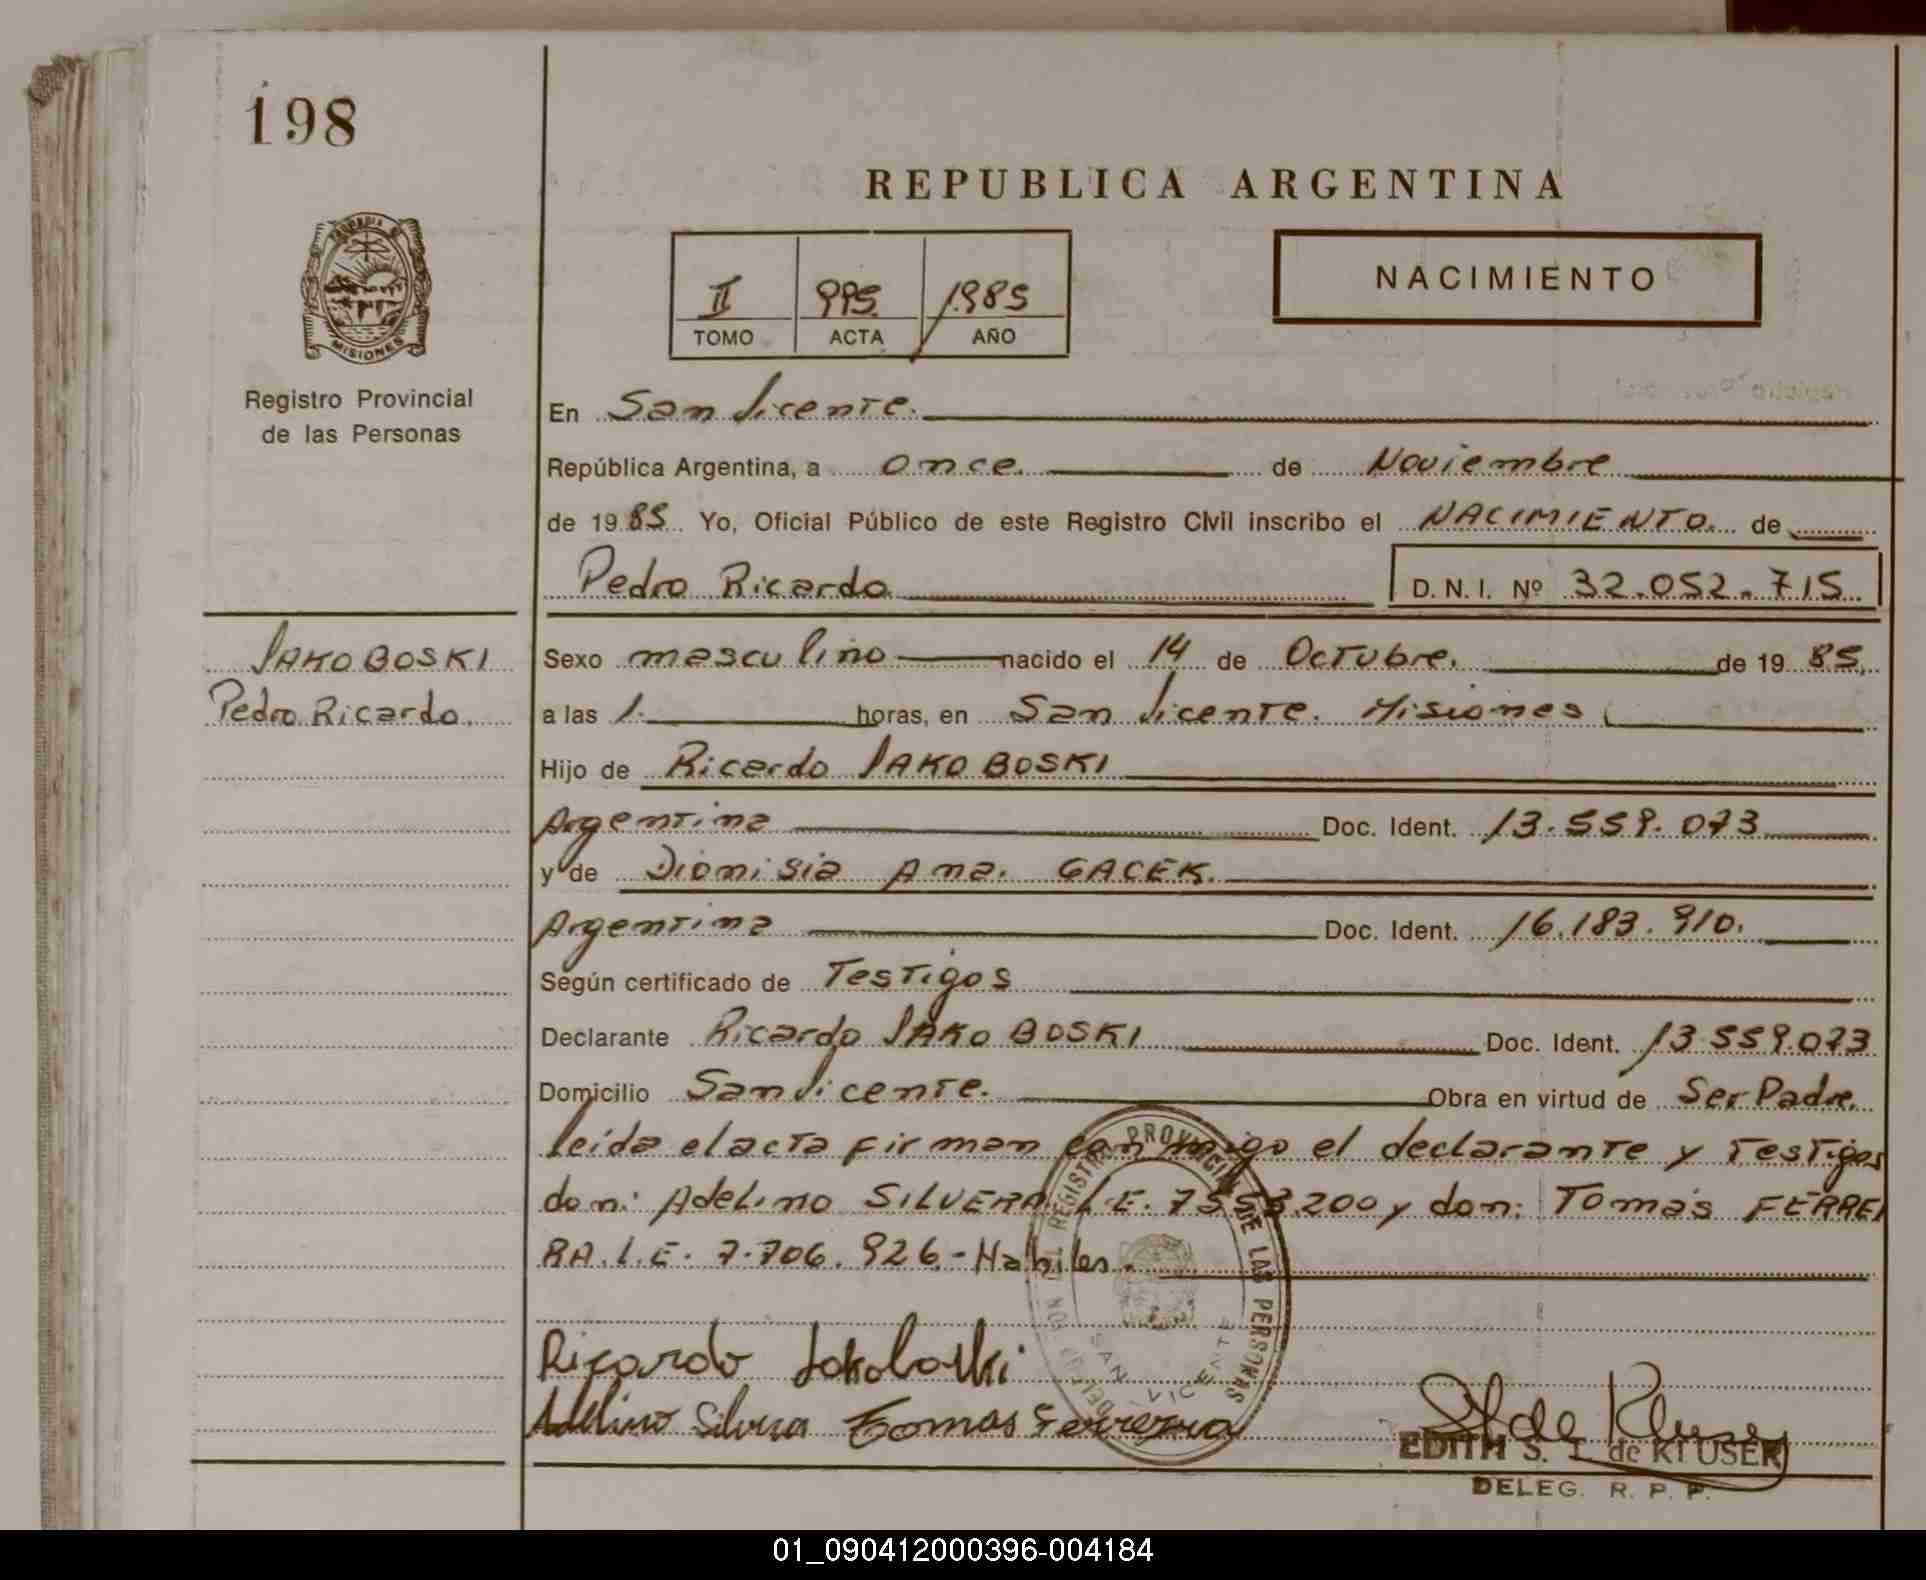 198
REPUBLICA ARGENTINA
II 995 1985
TOMO ACTA AÑO
NACIMIENTO
MISIONES
Registro Provincial
de las Personas
En San Vicente.
República Argentina, a once. de Noviembre
de 1985 Yo, Oficial Público de este Registro Civil inscribo el NACIMIENTO. de
Pedro Ricardo D. N. I. Nº 32.052.715.
JAKOBOSKI
Pedro Ricardo.
Sexo masculino nacido el 14 de Octubre. de 1985,
a las 1. horas, en San Vicente. Misiones
Hijo de Ricardo JAKOBOSKI
Argentina Doc. Ident. 13.559.073
y de Dionisia Ana. GACEK.
Argentina Doc. Ident. 16.183.910.
Según certificado de Testigos
Declarante Ricardo JAKOBOSKI Doc. Ident. 13.559.073
Domicilio San Vicente. Obra en virtud de Ser Padre.
leída el acta firman conmigo el declarante y Testigos
don: Adelino SILVERA L.E. 7553.200 y don: Tomás FERREI
RA. L.E. 7.706.926.- Habiles.
DELEGACION DEL REGISTRO PROVINCIAL DE LAS PERSONAS
SAN VICENTE
Ricardo Jakoboski
Adelino Silvera Tomas Ferreira
EDITH S. T. de KLUSER
DELEG. R. P. P.
01_090412000396-004184